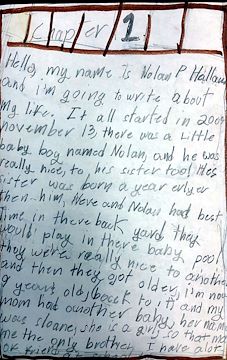 Chapter 1
Hello, my name Is Nolan P Hallam
and i'm going to write about
my life. It all started in 2009
november 13, there was a Little
baby boy named Nolan, and he was
really nice, to his sister too! Hes
sister was born a year erlyer
then him, Neve and Nolan had best
time in there back yard they
would play in there baby pool
they were really nice to another
and then they got older, i'm now
9 years old, back to it and my
mom had another baby, her name
was sloane, she is a girl, so that ma
me the only brother, I have alot
of friends